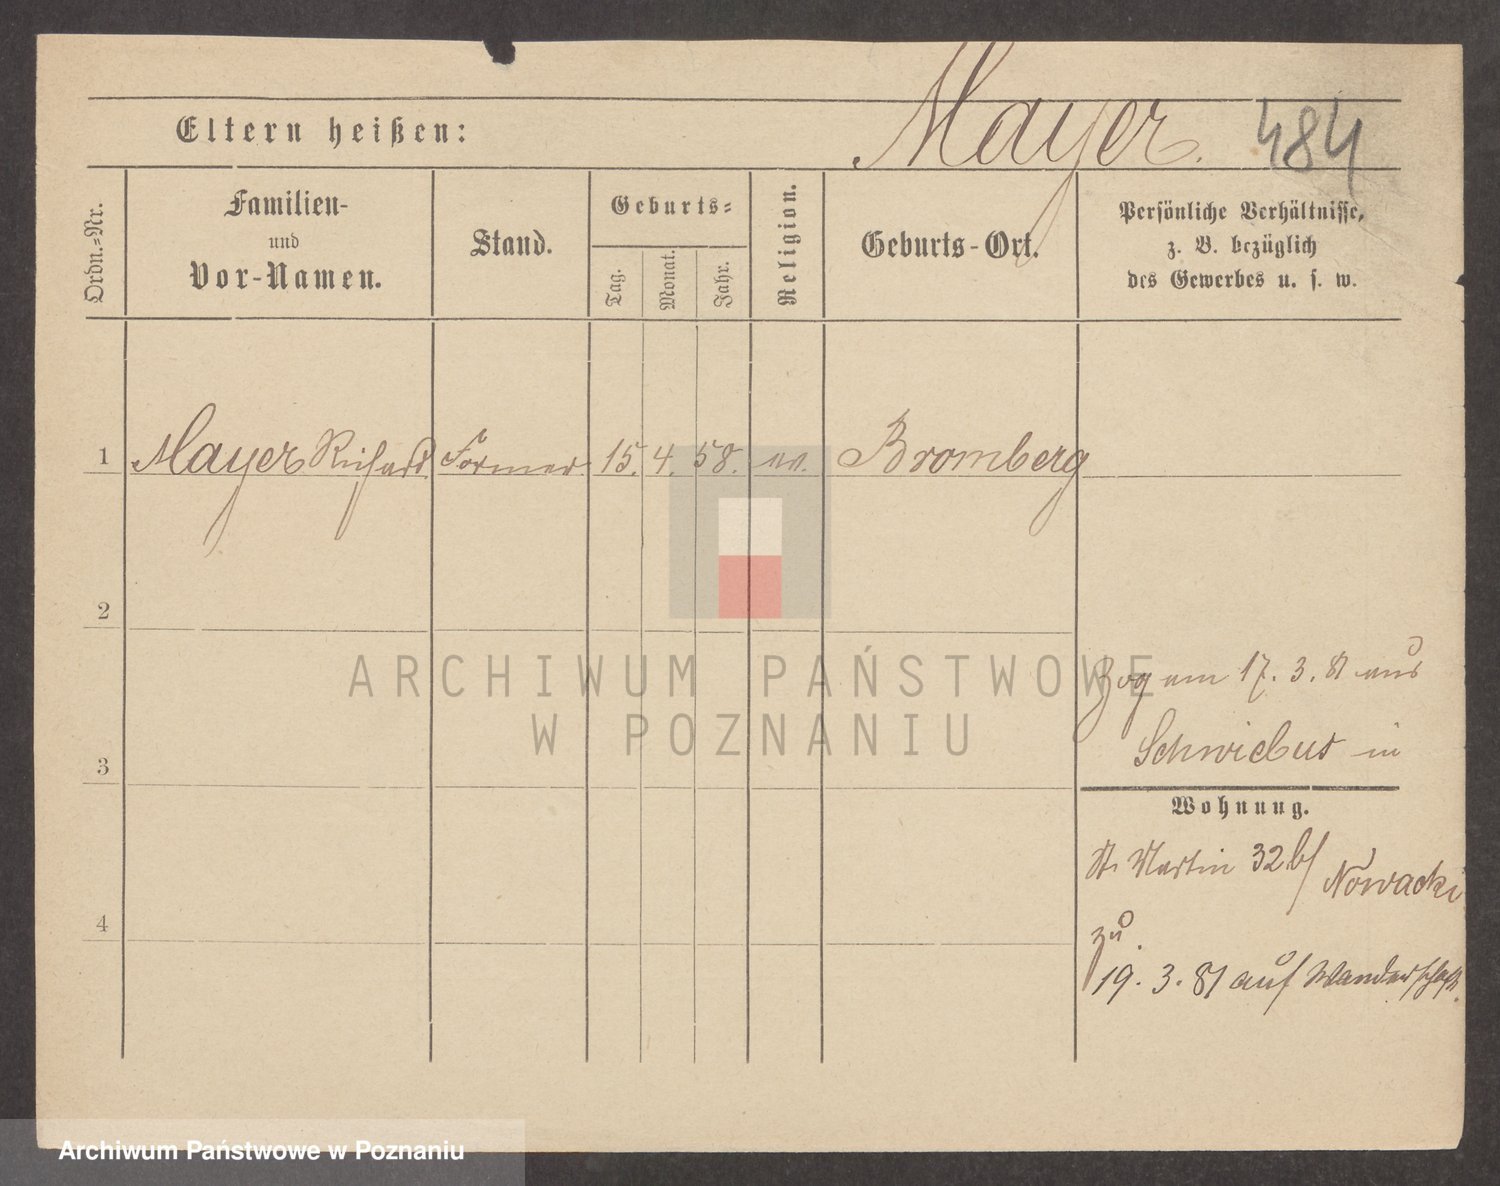 Mayer. 484
Eltern heißen:
Ordn.=Nr.
Familien-
und
Vor-Namen.
Stand.
Geburts=
Tag.
Monat.
Jahr.
Religion.
Geburts-Ort.
Persönliche Verhältnisse,
z. B. bezüglich
des Gewerbes u. s. w.
1 Mayer Richard Former 15. 4. 58. ev. Bromberg
2
3
4
Zog am 17. 3. 81 aus
Schwiebus in
Wohnung.
St. Martin 32 b/ Nowacki
zu.
19. 3. 81 auf Wanderschaft.
ARCHIWUM PAŃSTWOWE
W POZNANIU
Archiwum Państwowe w Poznaniu